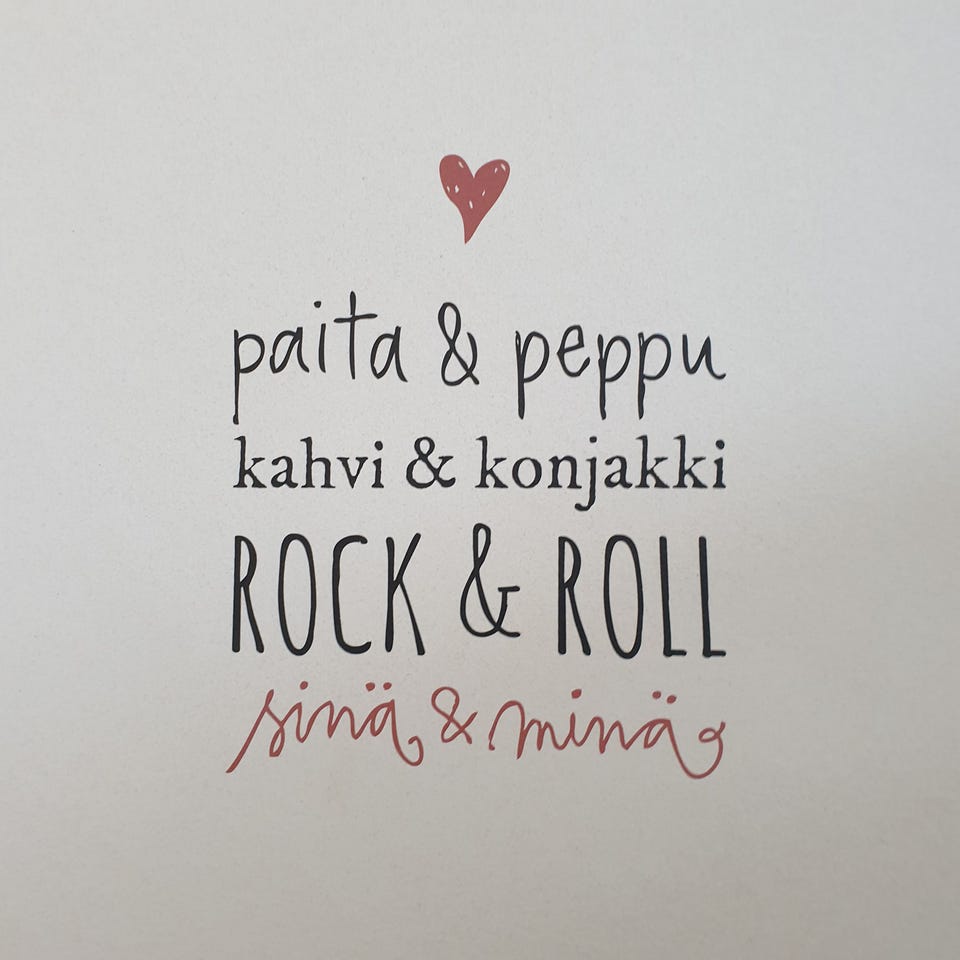 paita & peppu
kahvi & konjakki
ROCK & ROLL
sinä & minä